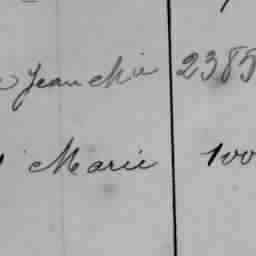 Jean Mie 2385
Marie 100